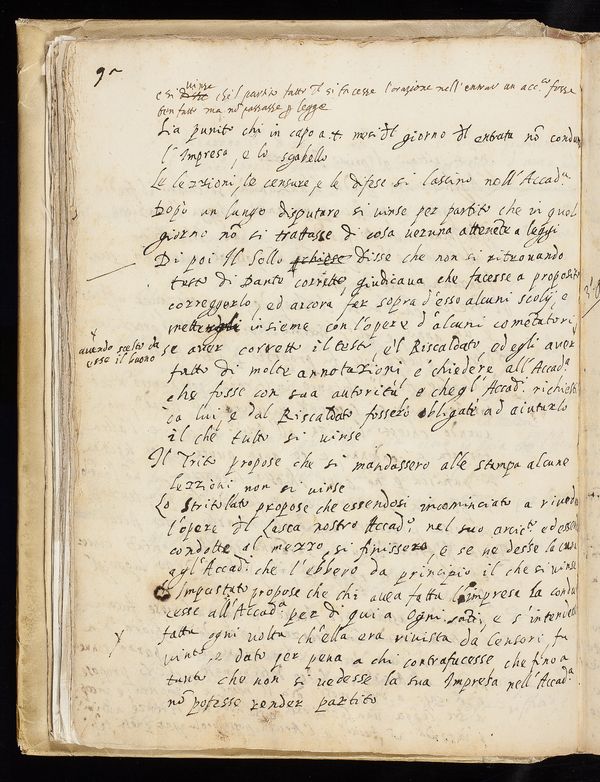 e si vinse che'l partito fatto ch si facesse l'orazione nell'entrar un acc.º fosse
ben fatto ma nõ passasse p legge
sia punito chi in capo a mesi dl giorno dl entrata nõ conduce
l'Impresa, e lo sgabello
Le lezzioni, le censure, e le difese si lascino nell'Accad.ª
Dopo un lungo disputare si vinse per partito che in quel
giorno nõ si trattasse di cosa veruna attenete a leggi
Di poi Il Sollo disse che non si ritrovando
testo di Dante corretto, giudicava che facesse a proposito
correggerlo, ed ancora far sopra d'esso alcuni scolij, e
metter insieme con l'opere d'alcuni cometatori
avendo scelto da
esse il buono
se aver corretto il testo, e'l Riscaldato ed egli aver
fatto di molte annotazioni e chiedere all'Accad.ª
che fosse con sua autorità, e che gl'Accad. richiesti
da lui e dal Riscaldato fossero obligati ad aiutarlo
il che tutto si vinse
Il Trito propose che si mandassero alle stampa alcune
lezzioni non si vinse
Lo Stritolato propose che essendosi incominciato a rivede
l'opere dl Lasca nostro Accad.º nel suo arcic.º ed essen
condotte al mezzo, si finissero, e se ne desse la cura
agl'Accad. che l'ebbero da principio il che si vinse
L'Impastato propose che chi avea fatta l'impresa la condu
cesse all'Accad.ª per di qui a Ogni santi, e s'intendesse
fatta ogni volta ch'ella era rivista da Censori, fu
vinto, e dato per pena a chi contrafacesse che fino a
tanto che non si vedesse la sua Impresa nell'Accad.ª
nõ potesse render partito